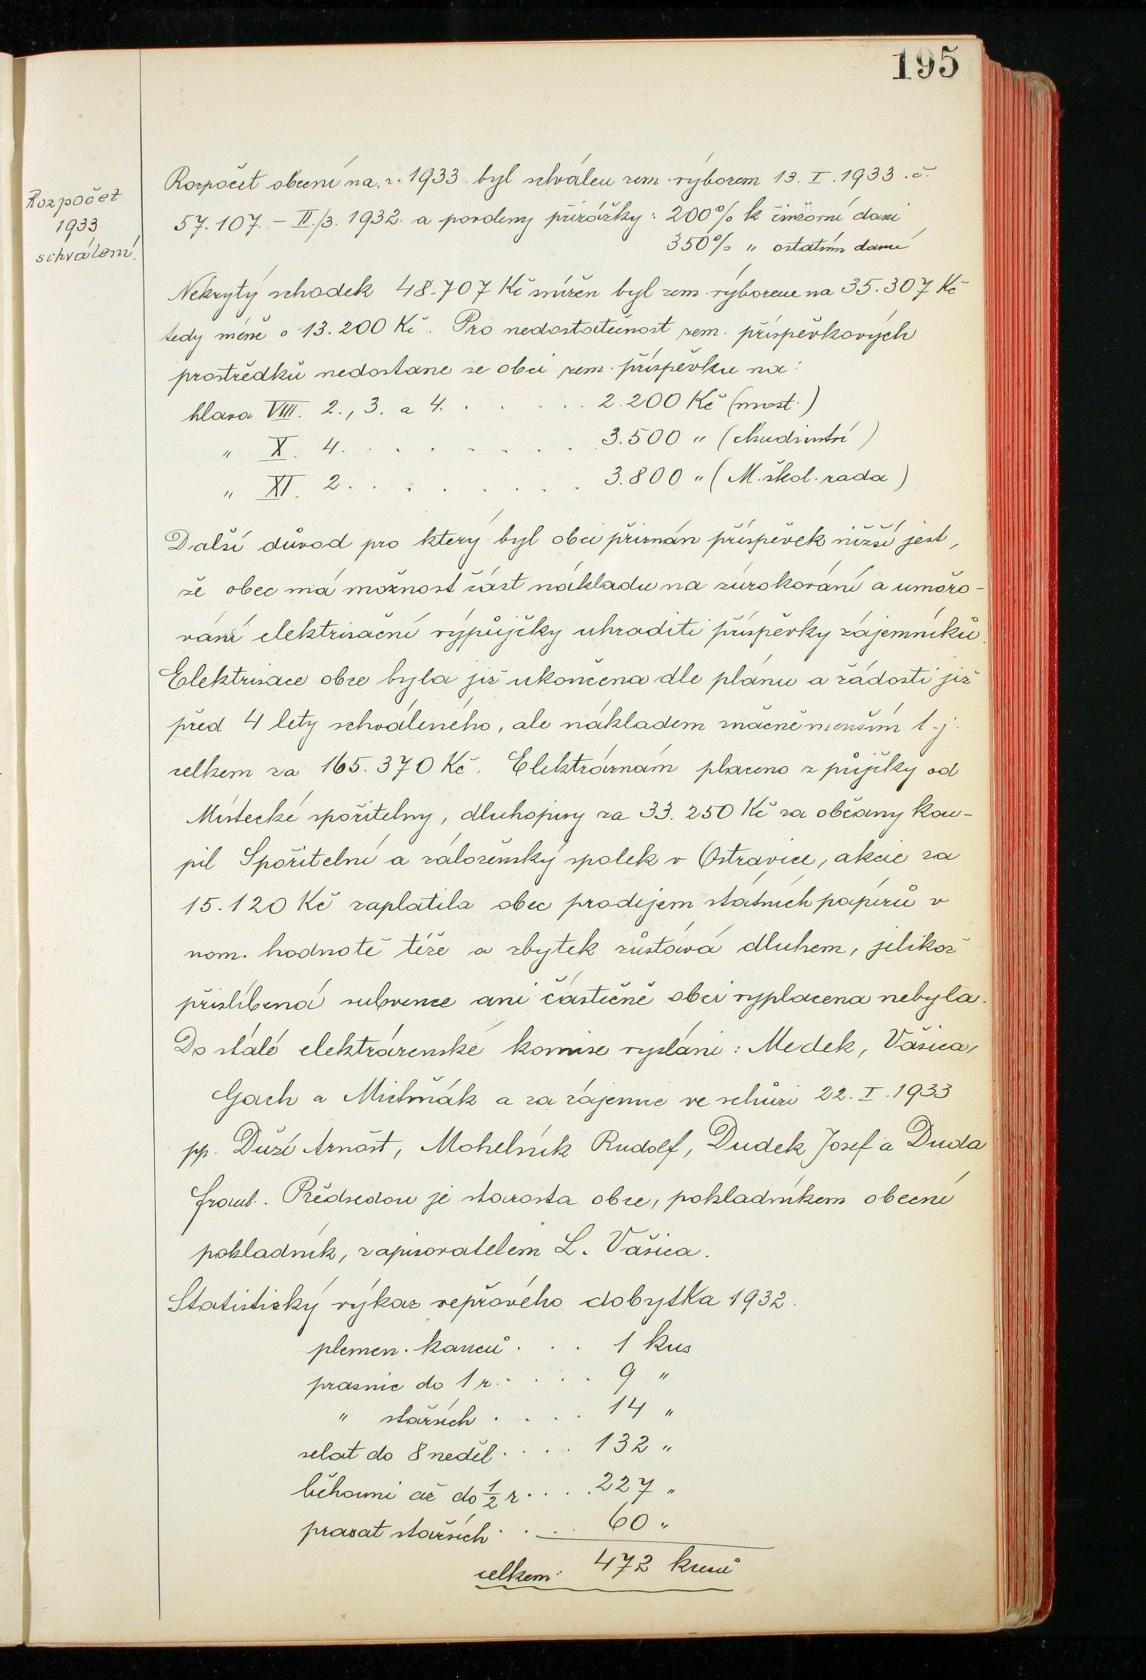 195
Rozpočet
1933
schválení.
Rozpočet obecní na r. 1933 byl schválen zem. výborem 13. I. 1933 č.
57.107. – II/3. 1932. a povoleny přirážky: 200% k činžovní dani
350% " ostatním daním
Nekrytý schodek 48.707 Kč snížen byl zem. výborem na 35.307 Kč
tedy méně o 13.200 Kč. Pro nedostatečnost zem. příspěvkových
prostředků nedostane se obci zem. příspěvku na:
hlava VIII. 2., 3. a 4. . . . . . . 2.200 Kč (most.)
" X. 4. . . . . . . . . . 3.500 " (chudinství)
" XI. 2. . . . . . . . . 3.800 " (M. škol. rada)
Další důvod pro který byl obci přiznán příspěvek nižší jest,
že obec má možnost část nákladu na zúrokování a umořo-
vání elektrisační výpůjčky uhraditi příspěvky zájemníků.
Elektrisace obce byla již ukončena dle plánu a žádosti již
před 4 lety schváleného, ale nákladem značně menším t. j.
celkem za 165.370 Kč. Elektrárnám placeno z půjčky od
Místecké spořitelny, dluhopisy za 33.250 Kč za občany kou-
pil Spořitelní a záloženský spolek v Ostravice, akcie za
15.120 Kč zaplatila obec prodejem státních papírů v
nom. hodnotě téže a zbytek zůstává dluhem, jelikož
přislíbená subvence ani částečně obci vyplacena nebyla.
Do stálé elektrárenské komise vysláni: Medek, Vašica,
Gach a Michňák a za zájemce ve schůzi 22. I. 1933
pp. Duží Arnošt, Mohelník Rudolf, Dudek Josef a Duda
Frant. Předsedou je starosta obce, pokladníkem obecní
pokladník, zapisovatelem L. Vašica.
Statistický výkaz vepřového dobytka 1932.
plemen. kanců . . . 1 kus
prasnic do 1 r. . . . . 9 "
" starších . . . . 14 "
selat do 8 neděl . . . . 132 "
běhouni až do ½ r. . . . 227 "
prasat starších . . . . 60 "
celkem: 472 kusů